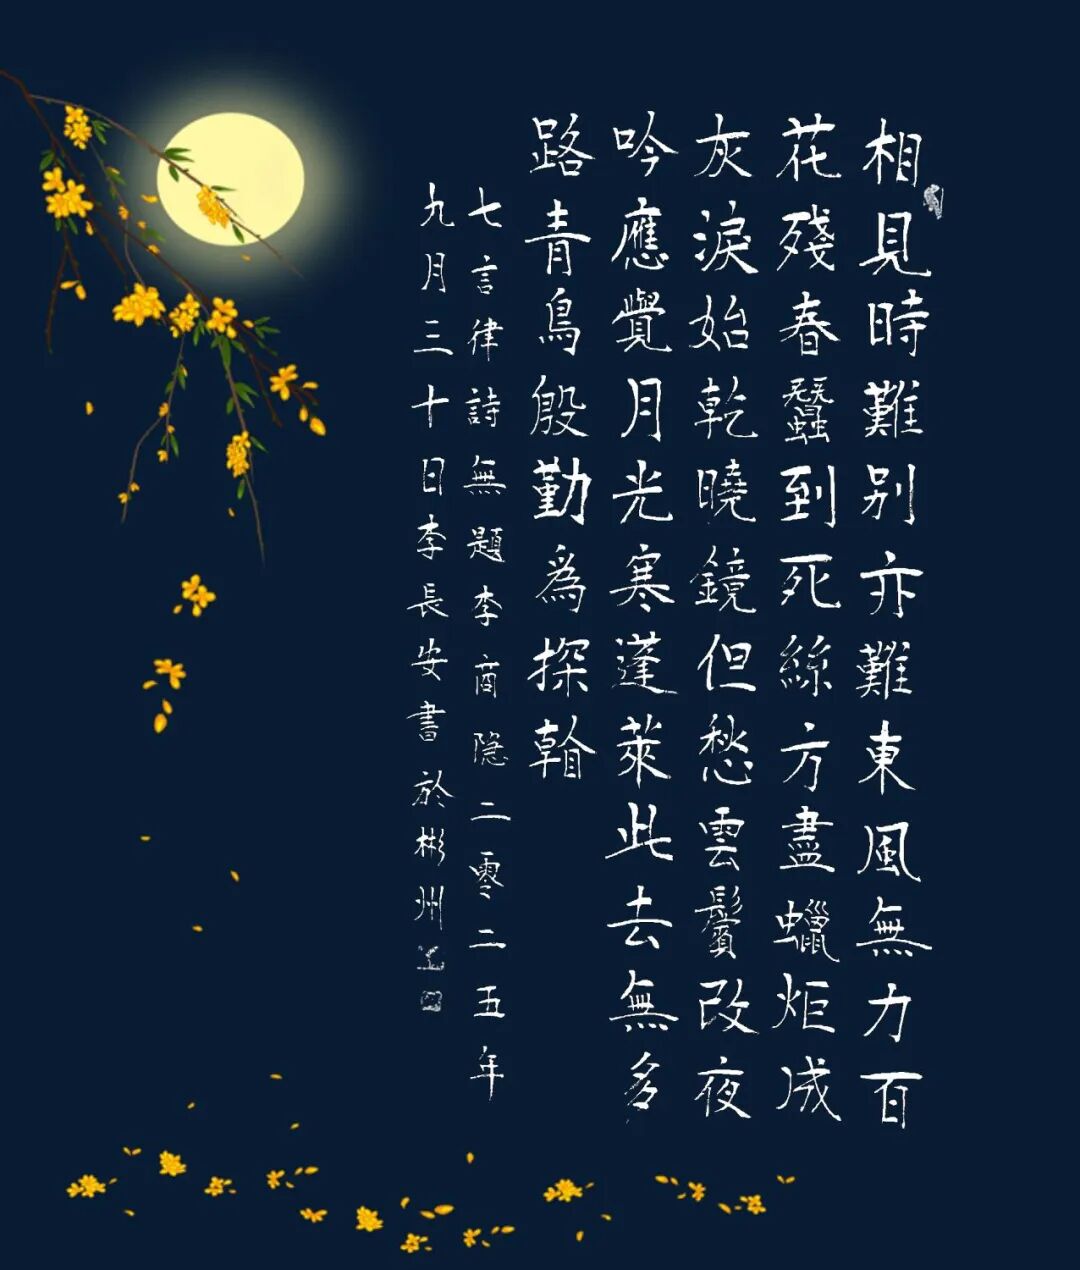 相見時難别亦難東風無力百
花殘春蠶到死絲方盡蠟炬成
灰淚始乾曉鏡但愁雲鬢改夜
吟應覺月光寒蓬萊此去無多
路青鳥殷勤爲探
七言律詩無題李商隐二零二五年
九月三十日李長安書於彬州